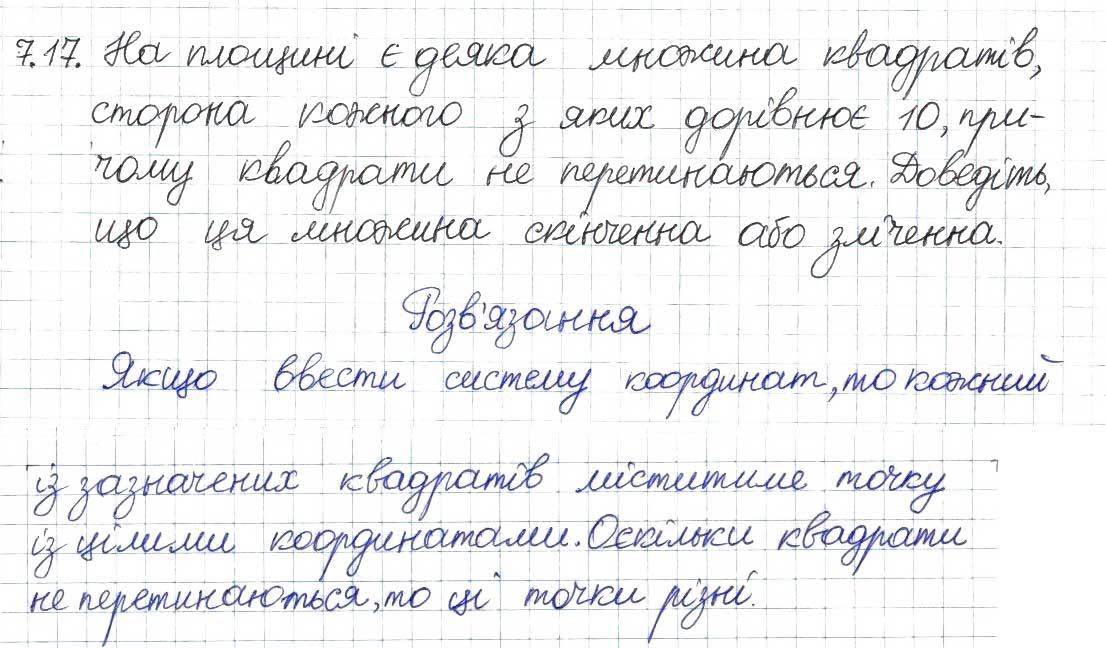 7.17. На площині є деяка множина квадратів,
сторона кожного з яких дорівнює 10, при-
чому квадрати не перетинаються. Доведіть,
що ця множина скінченна або зліченна.
Розв'язання
Якщо ввести систему координат, то кожний
із зазначених квадратів міститиме точку
із цілими координатами. Оскільки квадрати
не перетинаються, то ці точки різні.